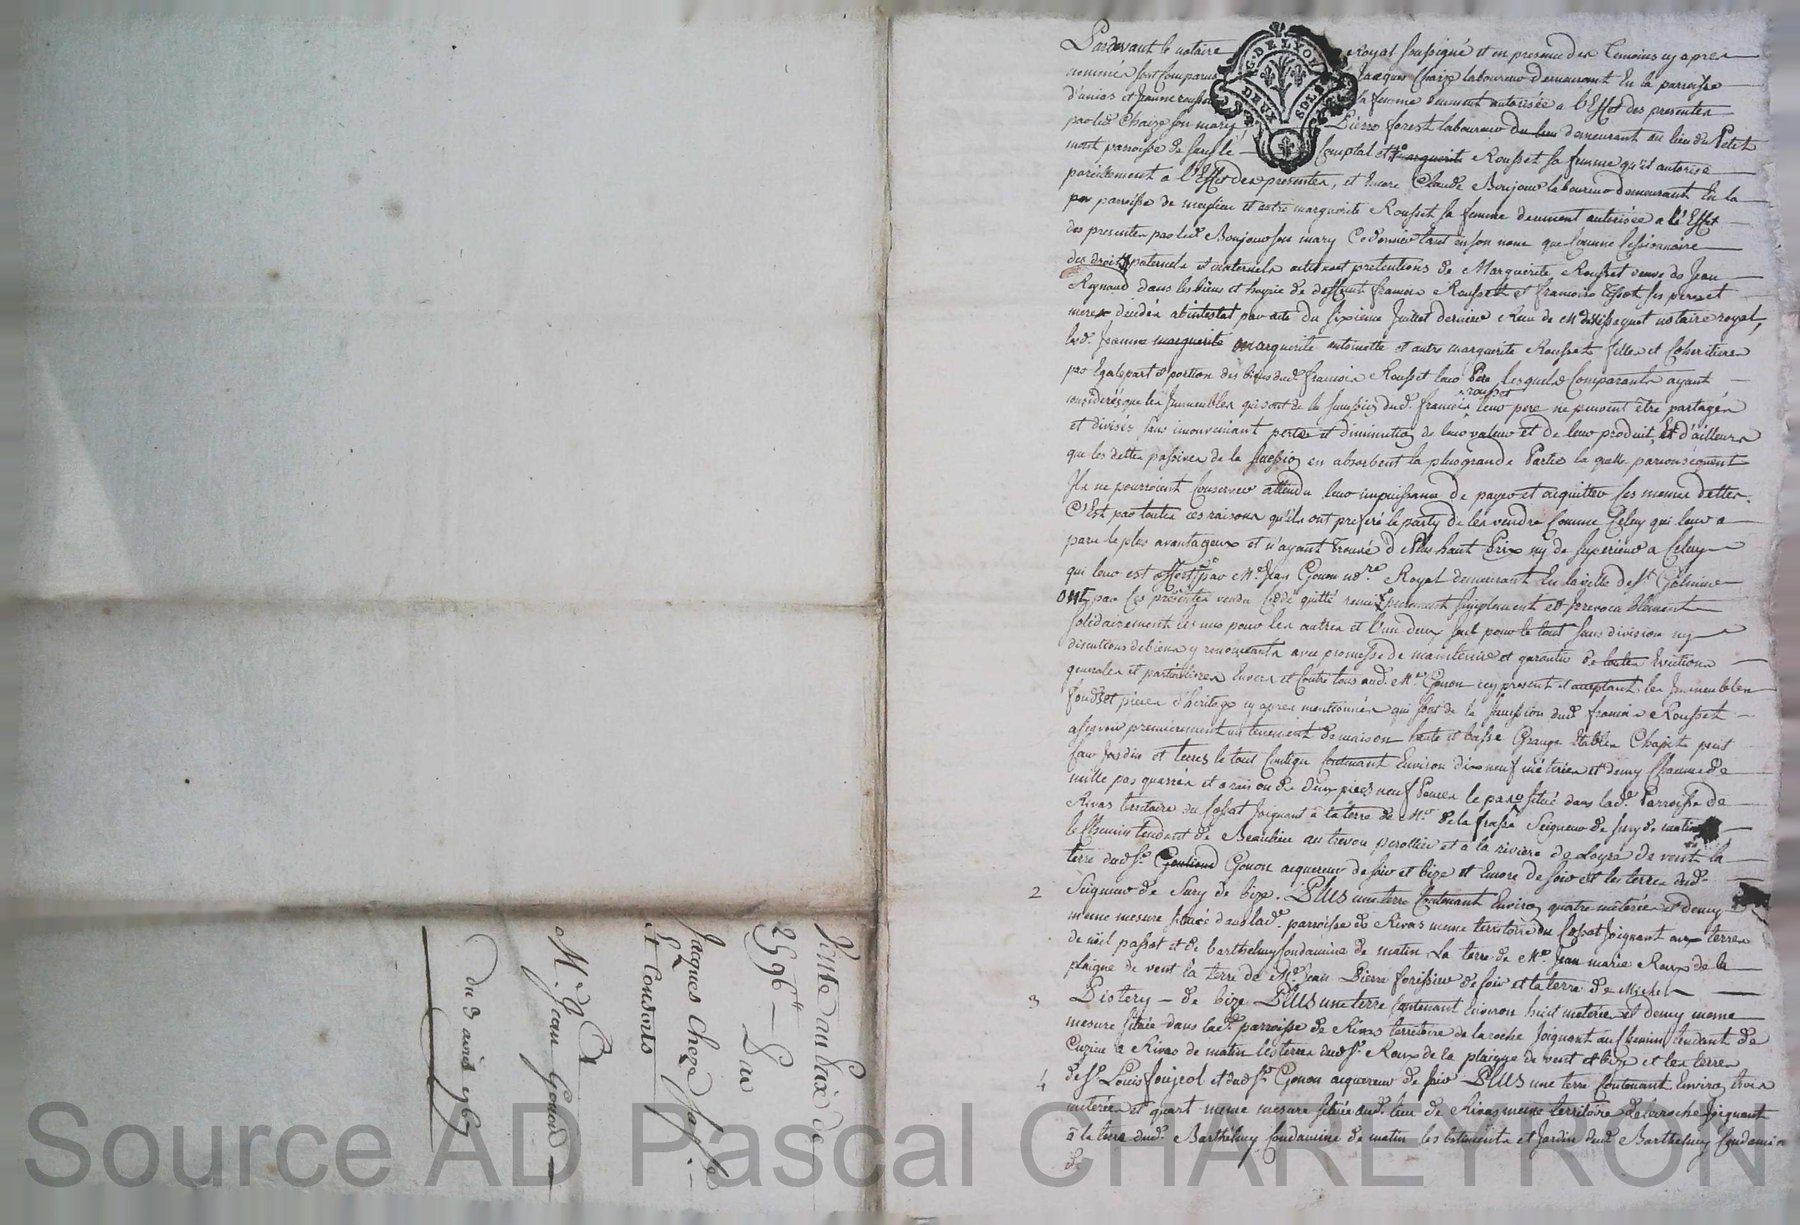 Pardevant le notaire Royal soussigné et en presence des temoins cy apres
nommés sont comparus Jacques Chaize laboureur demeurant en la paroisse
d'unias et Jeanne rousset sa femme deument autorisée a l'Effet des presentes
par led. Chaize son mary, Pierre forest laboureur du lieu demeurant au lieu du Petit
mont parroisse de Comptal et marguerite Rousset sa femme qu'il autorise
pareillement a l'Effet des presentes, et encore Claude Boujour laboureur demeurant En la
par parroisse de meylieu et autre marguerite Rousset sa femme deument autorisée a l'Effet
des presentes par led. Boujour son mary Ce dernier tant en son nom que comme Cessionnaire
des droits paternels et maternels actions et pretentions de Marguerite Rousset veuve de Jean
Reynaud dans les biens et hoyrie de deffunt francois Rousset et francoise tissot ses pere et
mere décédés abintestat par acte du sixieme Juillet dernier Reçu de Me notaire royal,
lesd. Jeanne marguerite marguerite antoinette et autre marguerite Rousset filles et Coheritieres
par Egale part et portion des biens dud. francois Rousset leur Pere, lesquels Comparants ayant
considerés que les Immeubles qui sont de la succession dud. francois rousset leur pere ne peuvent être partagés
et divisés sans inconveniant perte et diminution de leur valeur et de leur produit, Et d'ailleurs
que les dettes passives de la succession en absorbent la plus grande Partie la quelle par consequent
Ils ne pourroient Conserver attendu leur impuissance de payer et acquitter les memes dettes.
C'Est par toutes ces raisons qu'ils ont preferé le party de les vendre Comme Celuy qui leur a
paru le plus avantageux et n'ayant trouvé de Plus haut Prix ny de superieur a Celuy
qui leur est offert par Me Jean Gonon nore Royal demeurant En la ville de St Galmier
ont par Ces présentes vendu Cédé quitté remis purement simplement et Irrevocablement
solidairement les uns pour les autres et l'un deux seul pour le tout sans division ny
discutions de biens y renonceants avec promesse de maintenir et garantir de toutes Evictions
generales et particulieres Envers et Contre tous aud. Me Gonon icy present et acceptant les Immeubles
fonds et pieces d'heritages cy apres mentionnés qui sont de la succession dud. francois Rousset
assavoir premierement un tenement de maison haute et basse Grange Etables Chapit
Jardin et terres le tout Contigu Contenant Environ dix neuf méterées et demy Chacune de
mille pas quarrés et a raison de deux pieds neuf Pouces le pas situé dans lad. Parroisse de
Rivas territoire du fossat Joignant a la terre de Mr de la frasse Seigneur de Sury de matin
le Chemin tendant de Beaulieu au treyou perollier et a la riviere de Loyre de vent la
terre dud. Sr Gonon acquereur de soir et bize et Encore de soir et les terres dud.
2 Seigneur de Sury de bize. PLUS une terre Contenant Environ quatre méterées et demy
meme mesure située dans lad. parroisse de Rivas meme territoire du fossat Joignant aux terres
de noël passot et de barthelemy fondamine de matin La terre de Mr Jean marie Roux de la
plaigne de vent la terre de Mr Jean Pierre forissier de soir et la terre de Michel
3 Pistery de bize PLUS une terre Contenant Environ huit méterées et demy meme
mesure située dans lad. parroisse de Rivas territoire de la roche Joignant au Chemin tendant de
Cuzieu a Rivas de matin les terres dud. Sr Roux de la plaigne de vent et bize et les terres
4 de Sr Louis foujeol et dud. Sr Gonon acquereur de soir PLUS une terre Contenant Environ trois
méterées et quart meme mesure située aud. lieu de Rivas meme territoire de la roche Joignant
a la terre dud. Barthelemy fondamine de matin les batiments et Jardin dud. Barthelemy fondamine
de
Vente au prix de
2596 lt
Par
Jacques Cheze sa fe
et Consorts
A
Me Jean Gonon
du 3 avril 1767
G. DE LYON
DEUX SOLS
Source AD Pascal CHAREYRON